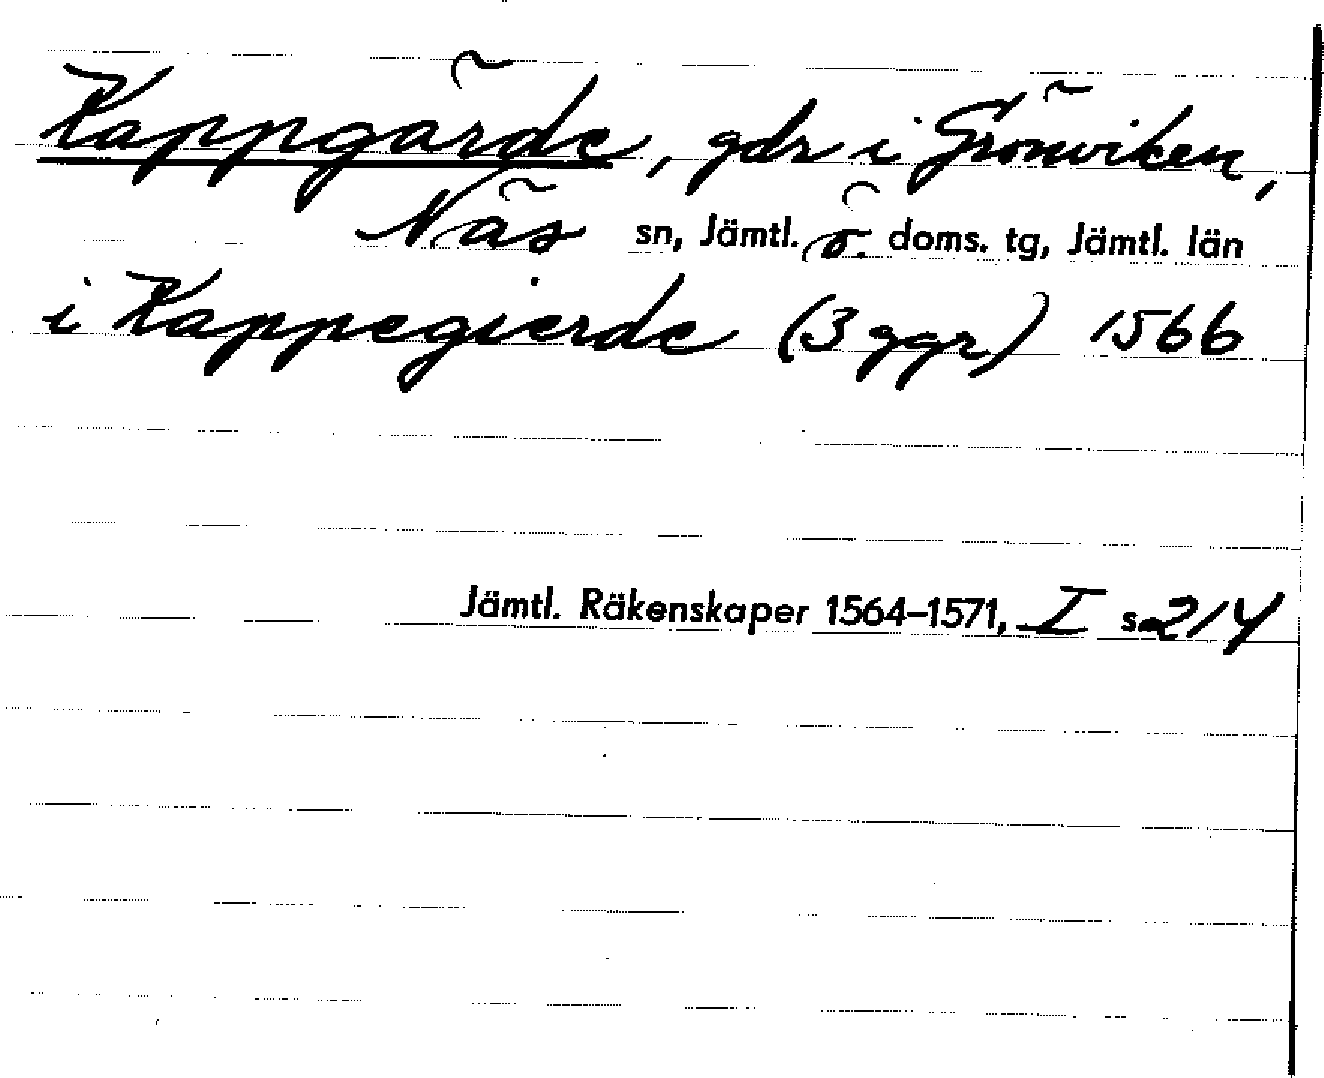 Kappgärde, gdr i Grönviken,
Näs sn, Jämtl. ö. doms. tg, Jämtl. län
i Kappegierde (3 ggr) 1566
Jämtl. Räkenskaper 1564–1571, I s 214